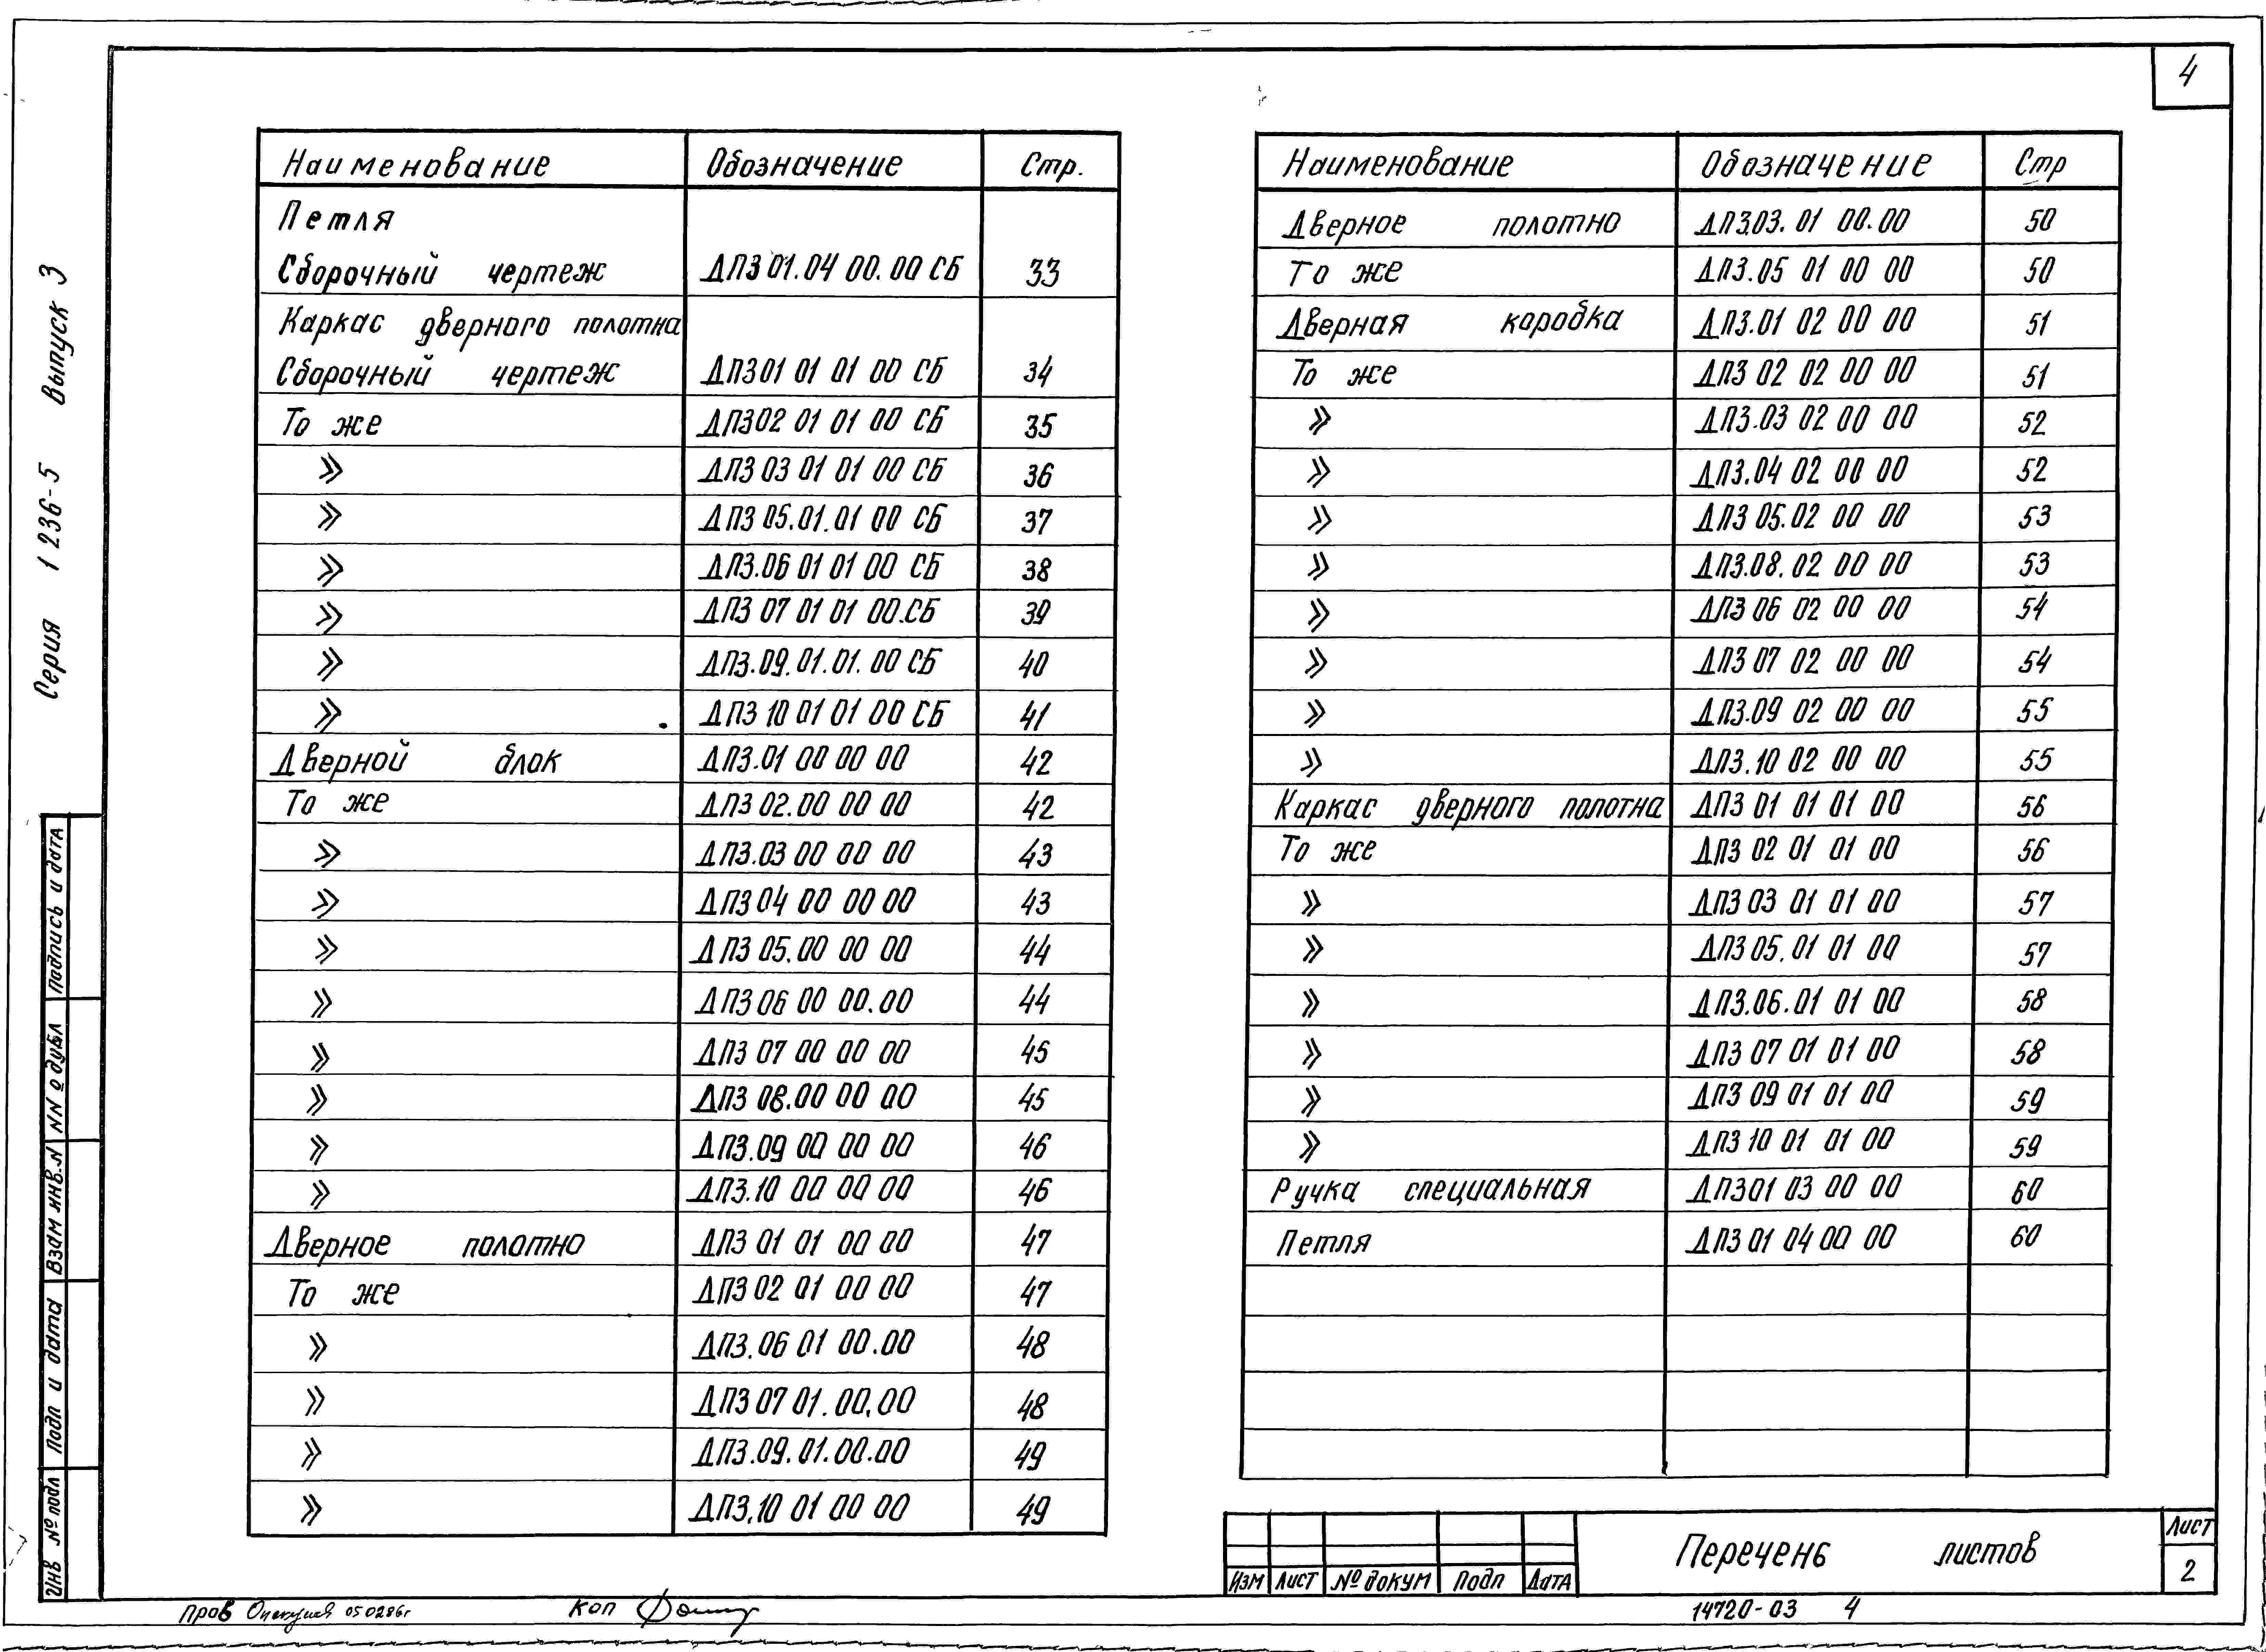 4
Серия 1 236-5 Выпуск 3
Наименование Обозначение Стр.
Петля
Сборочный чертеж ДПЗ 01.04 00.00 СБ 33
Каркас дверного полотна
Сборочный чертеж ДПЗ01 01 01 00 СБ 34
То же ДПЗ02 01 01 00 СБ 35
» ДПЗ 03 01 01 00 СБ 36
» ДПЗ 05.01.01 00 СБ 37
» ДПЗ.06 01 01 00 СБ 38
» ДПЗ 07 01 01 00.СБ 39
» ДПЗ.09.01.01.00 СБ 40
» ДПЗ 10 01 01 00 СБ 41
Дверной блок ДПЗ.01 00 00 00 42
То же ДПЗ 02.00 00 00 42
» ДПЗ.03 00 00 00 43
» ДПЗ 04 00 00 00 43
» ДПЗ 05.00 00 00 44
» ДПЗ 06 00 00.00 44
» ДПЗ 07 00 00 00 45
» ДПЗ 08.00 00 00 45
» ДПЗ.09 00 00 00 46
» ДПЗ.10 00 00 00 46
Дверное полотно ДПЗ 01 01 00 00 47
То же ДПЗ 02 01 00 00 47
» ДПЗ.06 01 00.00 48
» ДПЗ 07 01.00.00 48
» ДПЗ.09.01.00.00 49
» ДПЗ.10 01 00 00 49
Наименование Обозначение Стр
Дверное полотно ДПЗ.03.01 00.00 50
То же ДПЗ.05 01 00 00 50
Дверная коробка ДПЗ.01 02 00 00 51
То же ДПЗ 02 02 00 00 51
» ДПЗ.03 02 00 00 52
» ДПЗ.04 02 00 00 52
» ДПЗ 05.02 00 00 53
» ДПЗ.08.02 00 00 53
» ДПЗ 06 02 00 00 54
» ДПЗ 07 02 00 00 54
» ДПЗ.09 02 00 00 55
» ДПЗ.10 02 00 00 55
Каркас дверного полотна ДПЗ 01 01 01 00 56
То же ДПЗ 02 01 01 00 56
» ДПЗ 03 01 01 00 57
» ДПЗ 05.01 01 00 57
» ДПЗ.06.01 01 00 58
» ДПЗ 07 01 01 00 58
» ДПЗ 09 01 01 00 59
» ДПЗ 10 01 01 00 59
Ручка специальная ДПЗ01 03 00 00 60
Петля ДПЗ 01 04 00 00 60
Инв № подл Подп и дата Взам инв.N NN о дубл Подпись и дата
Изм Лист № докум Подп Дата
Перечень листов
Лист
2
Пров 050286г Коп
14720-03 4